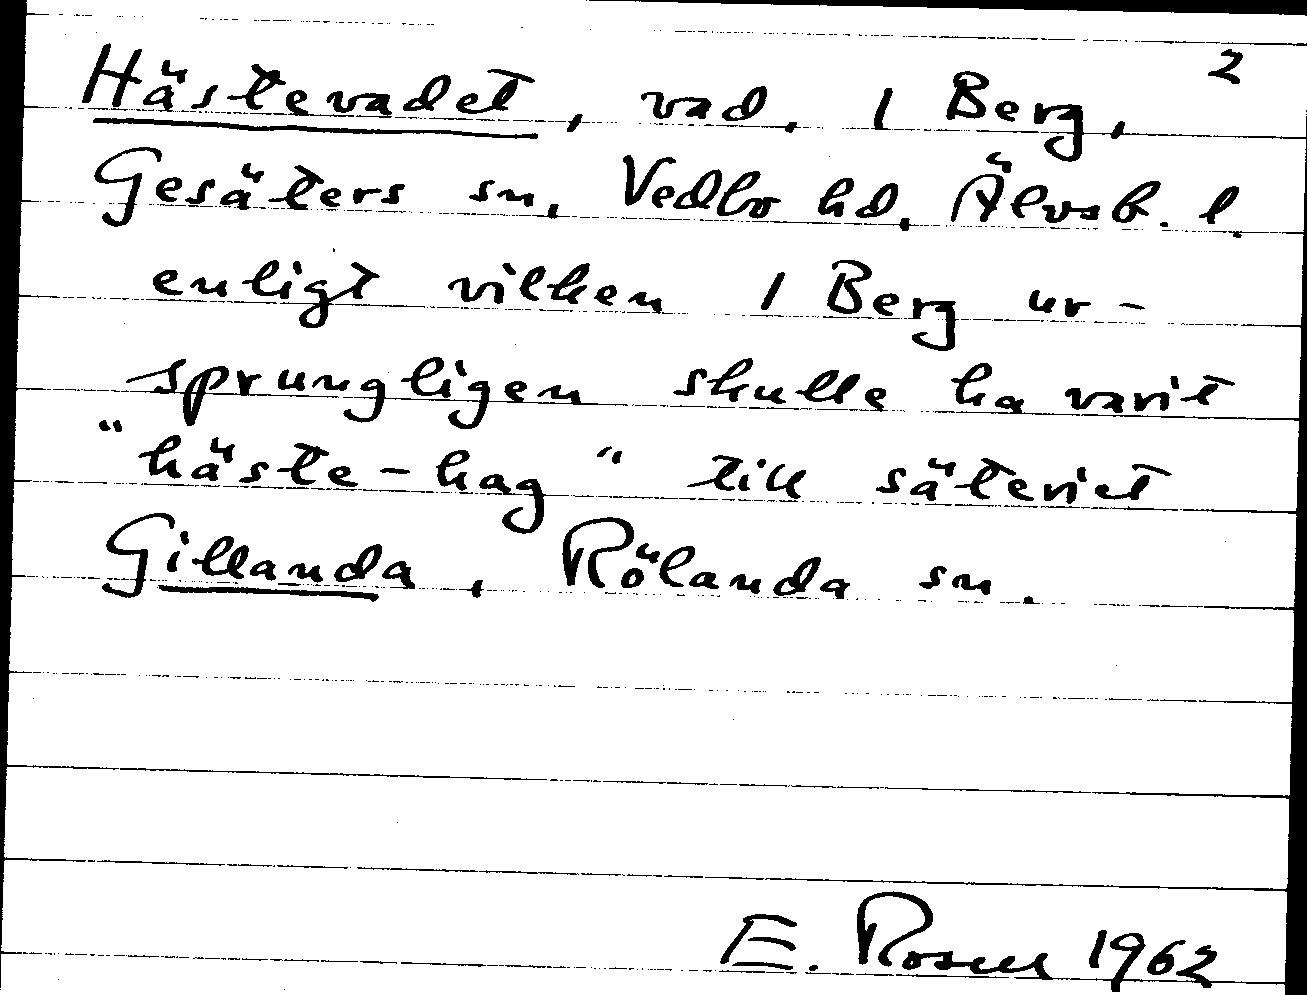 2
Hästevadet, vad. 1 Berg,
Gesäters sn, Vedbo hd, Älvsb. l.
enligt vilken 1 Berg ur-
sprungligen skulle ha varit
"häste-hag" till säteriet
Gillanda, Rölanda sn.
E. Rosell 1962